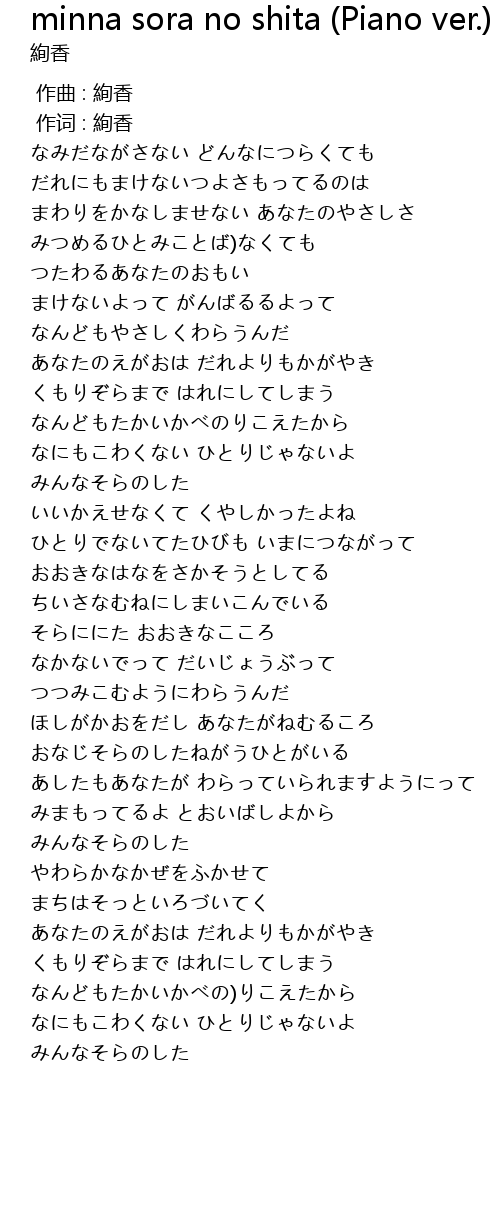 minna sora no shita (Piano ver.)
絢香
作曲 : 絢香
作词 : 絢香
なみだながさない どんなにつらくても
だれにもまけないつよさもってるのは
まわりをかなしませない あなたのやさしさ
みつめるひとみことば)なくても
つたわるあなたのおもい
まけないよって がんばるるよって
なんどもやさしくわらうんだ
あなたのえがおは だれよりもかがやき
くもりぞらまで はれにしてしまう
なんどもたかいかべのりこえたから
なにもこわくない ひとりじゃないよ
みんなそらのした
いいかえせなくて くやしかったよね
ひとりでないてたひびも いまにつながって
おおきなはなをさかそうとしてる
ちいさなむねにしまいこんでいる
そらににた おおきなこころ
なかないでって だいじょうぶって
つつみこむようにわらうんだ
ほしがかおをだし あなたがねむるころ
おなじそらのしたねがうひとがいる
あしたもあなたが わらっていられますようにって
みまもってるよ とおいばしよから
みんなそらのした
やわらかなかぜをふかせて
まちはそっといろづいてく
あなたのえがおは だれよりもかがやき
くもりぞらまで はれにしてしまう
なんどもたかいかべの)りこえたから
なにもこわくない ひとりじゃないよ
みんなそらのした